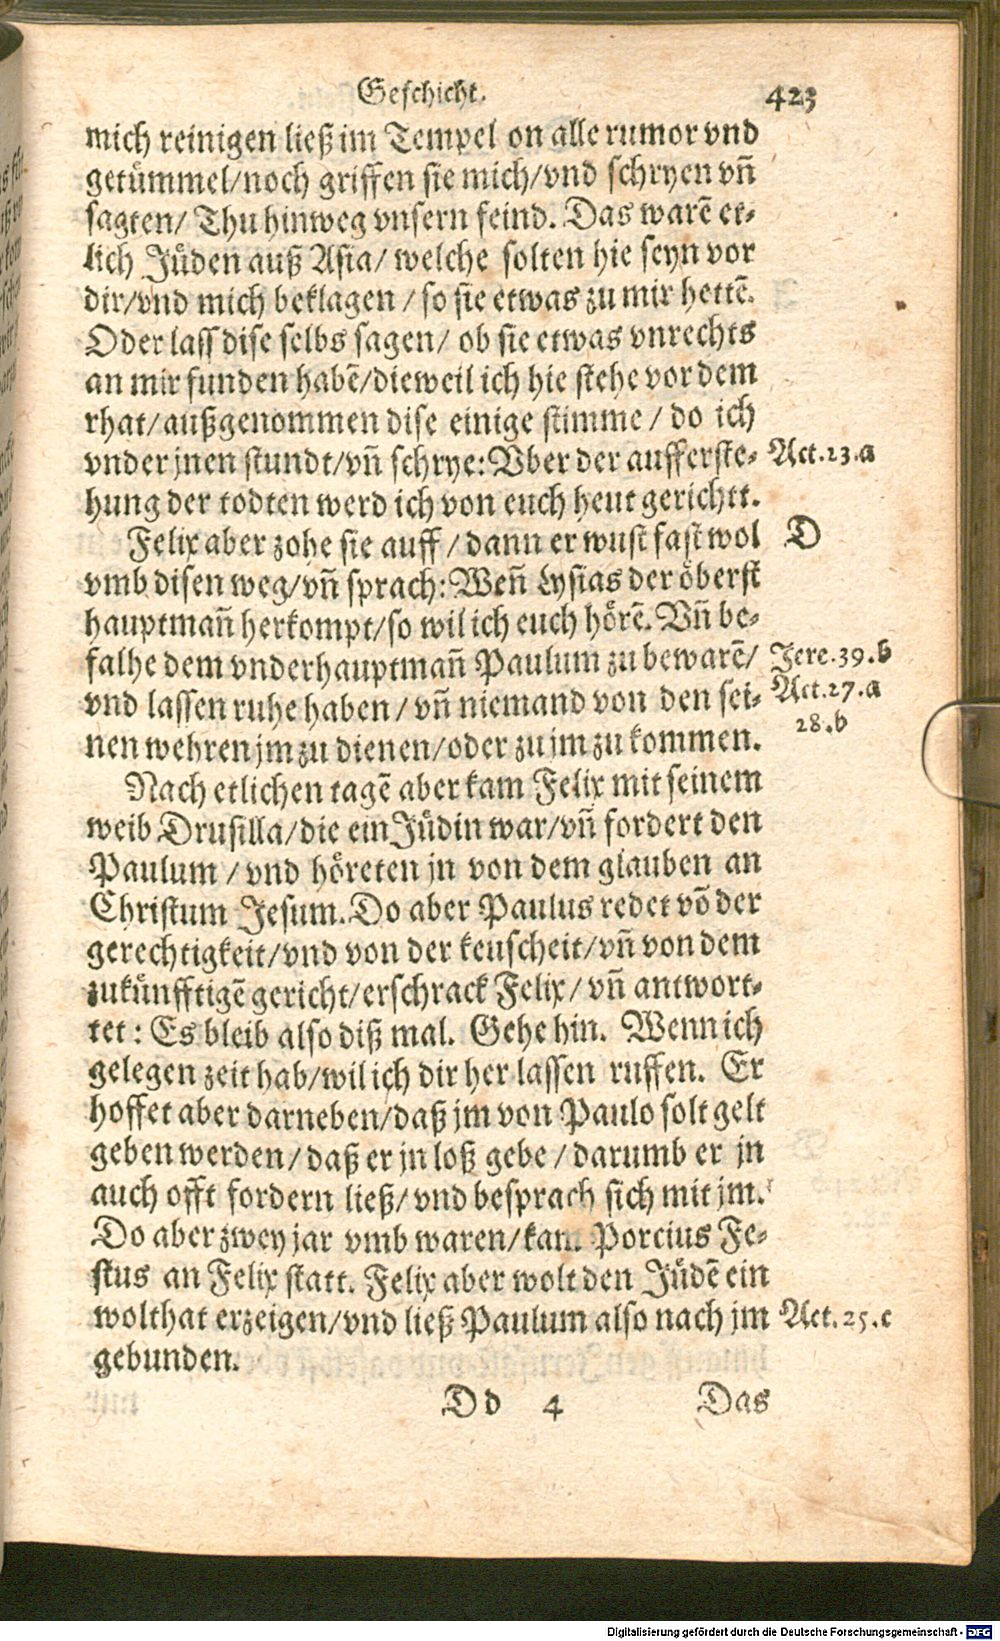 Geschicht. 423
mich reinigen ließ im Tempel on alle rumor vnd
getümmel/noch griffen sie mich/vnd schryen vñ
sagten/ Thu hinweg vnsern feind. Das warẽ et-
lich Jüden auß Asia/ welche solten hie seyn vor
dir/vnd mich beklagen / so sie etwas zu mir hettẽ.
Oder lass dise selbs sagen/ ob sie etwas vnrechts
an mir funden habẽ/dieweil ich hie stehe vor dem
rhat/außgenommen dise einige stimme / do ich
vnder jnen stundt/vñ schrye: Vber der aufferste- Act.23.a
hung der todten werd ich von euch heut gerichtt.
Felix aber zohe sie auff / dann er wust fast wol D
vmb disen weg/vñ sprach: Weñ Lysias der öberst
hauptmañ herkompt/so wil ich euch hörẽ. Vñ be-
falhe dem vnderhauptmañ Paulum zu bewarẽ/ Jere.39.b
vnd lassen ruhe haben / vñ niemand von den sei- Act.27.a
28.b
nen wehren jm zu dienen/oder zu jm zu kommen.
Nach etlichen tagẽ aber kam Felix mit seinem
weib Drusilla/die ein Jüdin war/vñ fordert den
Paulum / vnd höreten jn von dem glauben an
Christum Jesum. Do aber Paulus redet võ der
gerechtigkeit/vnd von der keuscheit/vñ von dem
zukünfftigẽ gericht/erschrack Felix/ vñ antwort-
tet: Es bleib also diß mal. Gehe hin. Wenn ich
gelegen zeit hab/wil ich dir her lassen ruffen. Er
hoffet aber darneben/daß jm von Paulo solt gelt
geben werden/ daß er jn loß gebe / darumb er jn
auch offt fordern ließ/ vnd besprach sich mit jm.
Do aber zwey jar vmb waren/kam Porcius Fe-
stus an Felix statt. Felix aber wolt den Jüdẽ ein
wolthat erzeigen/vnd ließ Paulum also nach jm Act.25.c
gebunden.
Dd 4 Das
Digitalisierung gefördert durch die Deutsche Forschungsgemeinschaft - DFG